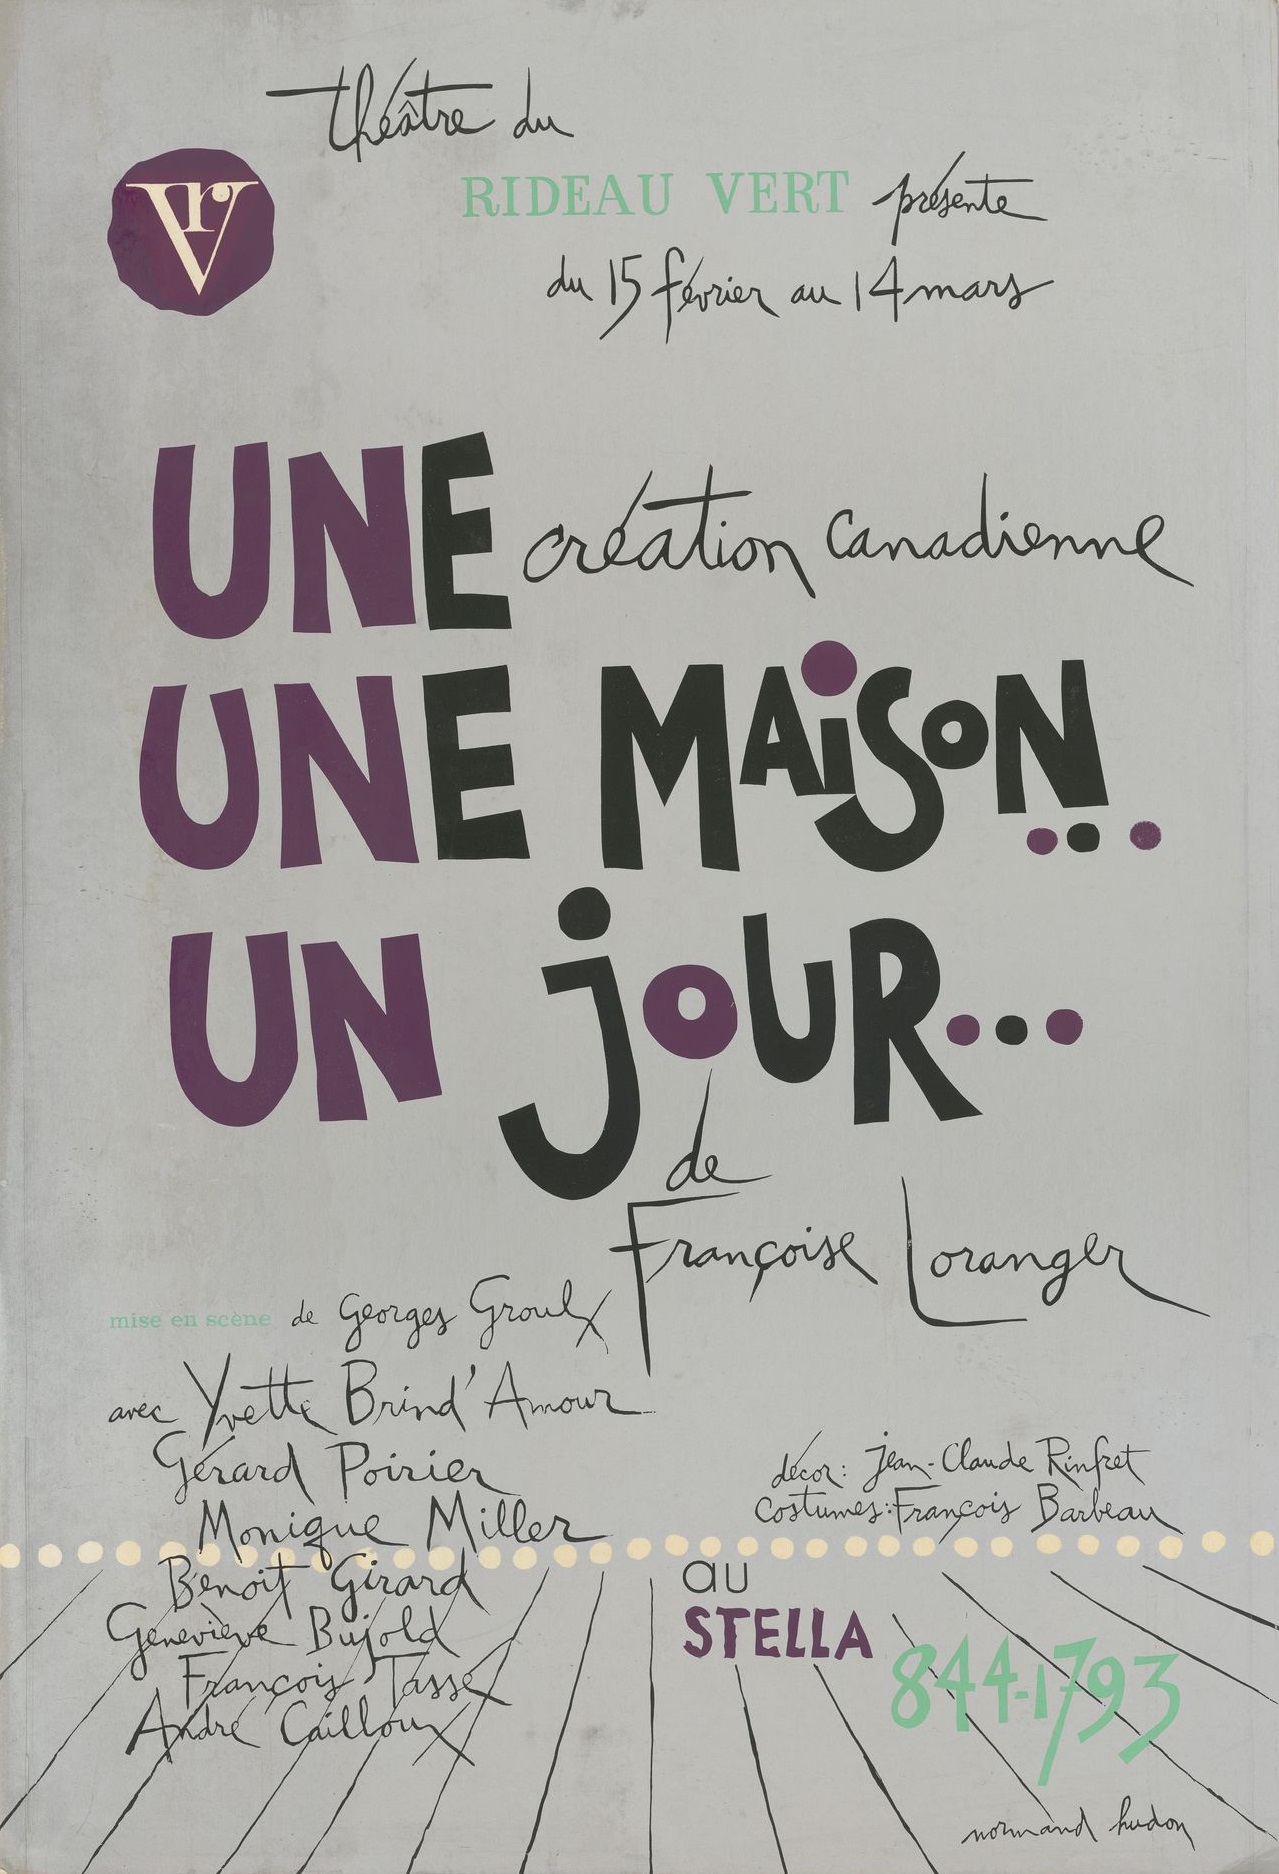 théâtre du
Vr
RIDEAU VERT présente
du 15 février au 14 mars
UNE création canadienne
UNE MAiSON...
UN jOUR...
de
Françoise Loranger
mise en scène de Georges Groulx
avec Yvette Brind'Amour
Gérard Poirier
Monique Miller
Benoit Girard
Geneviève Bujold
François Tassé
André Cailloux
décor: Jean-Claude Rinfret
costumes: François Barbeau
au
STELLA
844-1793
normand hudon